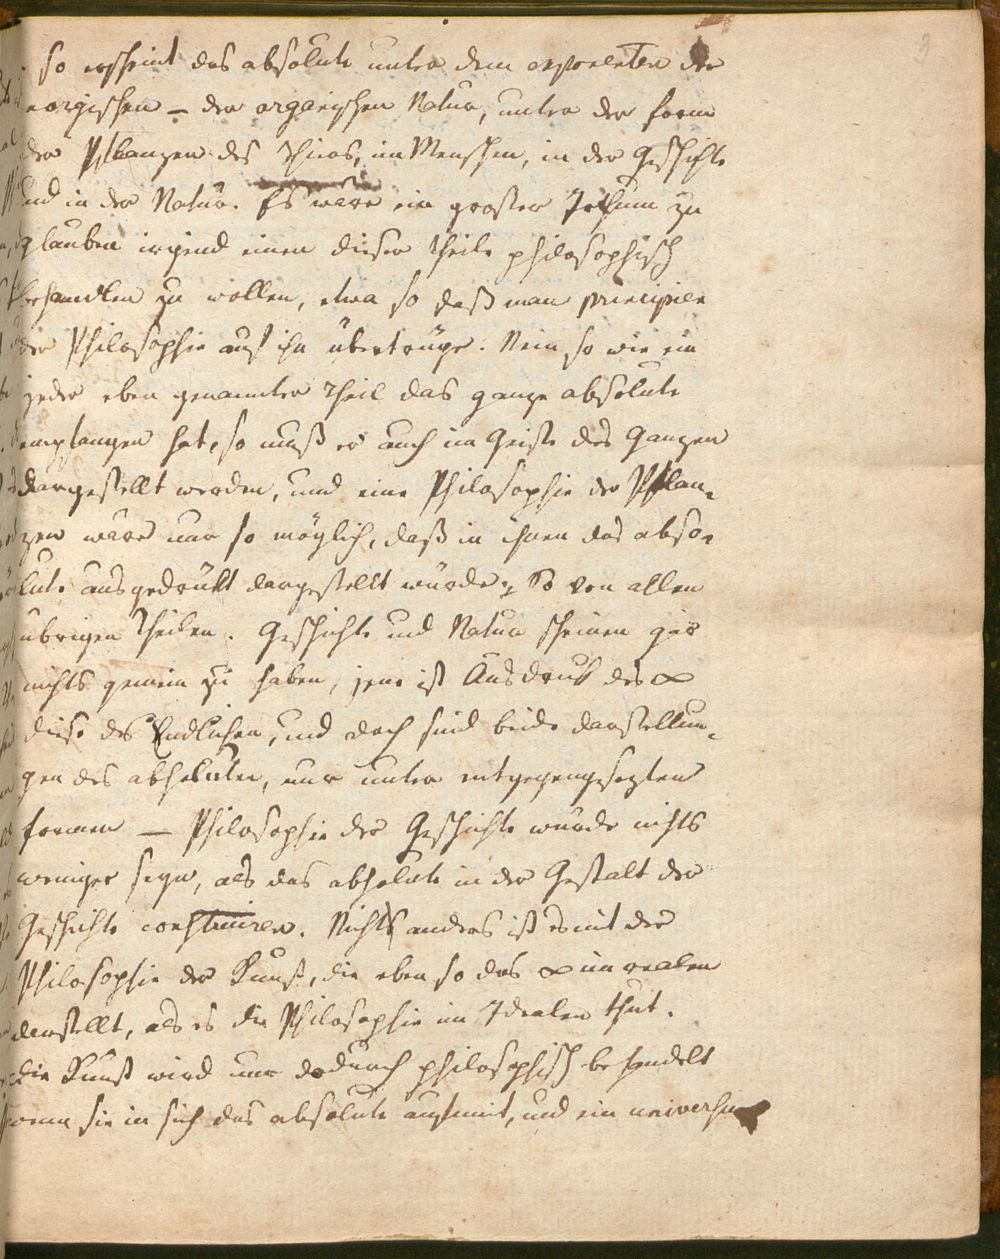 so erscheint das absolute unter dem exponenten der
anorgischen – der organischen Natur, unter der form
der Pflanzen des Thiers, im Menschen, in der Geschichte
und in der Natur. Es wäre ein grosser Irthum zu
glauben irgend einen dieser Theile philosophisch
behandlen zu wollen, etwa so daß man principien
der Philosophie auf ihn übertrüge. Nein so wie ein
jeder eben genannter Theil das ganze absolute
empfangen hat, so muß er auch im Geiste des Ganzen
dargestellt werden, und eine Philosophie der Pflan-
zen wäre nur so möglich, daß in ihnen das abso-
lute ausgedrükt dargestellt würde; So von allen
übrigen Theilen. Geschichte und Natur scheinen gar
nichts gemein zu haben, jene ist Ausdruk des ∞
diese des Endlichen, und doch sind beide darstellun-
gen des absoluten, nur unter entgegengesezten
formen — Philosophie der Geschichte würde nichts
weniger seyn, als das absolute in der Gestalt der
Geschichte construiren. Nichts anders ist es mit der
Philosophie der Kunst, die eben so das ∞ im realen
darstellt, als es die Philosophie im Idealen thut.
die Kunst wird nur dadurch philosophisch behandelt
wenn sie in sich das absolute aufnimt, und ein